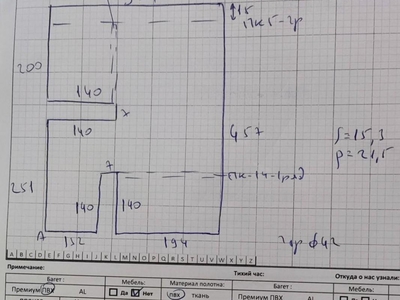 15
ПК5-2р
200
140
x
140
457
S=15,3
P=21,5
7
ПК-14-1ряд
251
140
140
A
132
194
A B C D E F G H I J K L M N O P Q R S T U V W X Y Z
Примечание:
Тихий час:
Откуда о нас узнали:
Багет:
Мебель:
Материал полотна:
Багет:
Мебель:
Премиум ПВХ
AL
Да
Нет
ПВХ
ткань
Премиум ПВХ
AL
Да